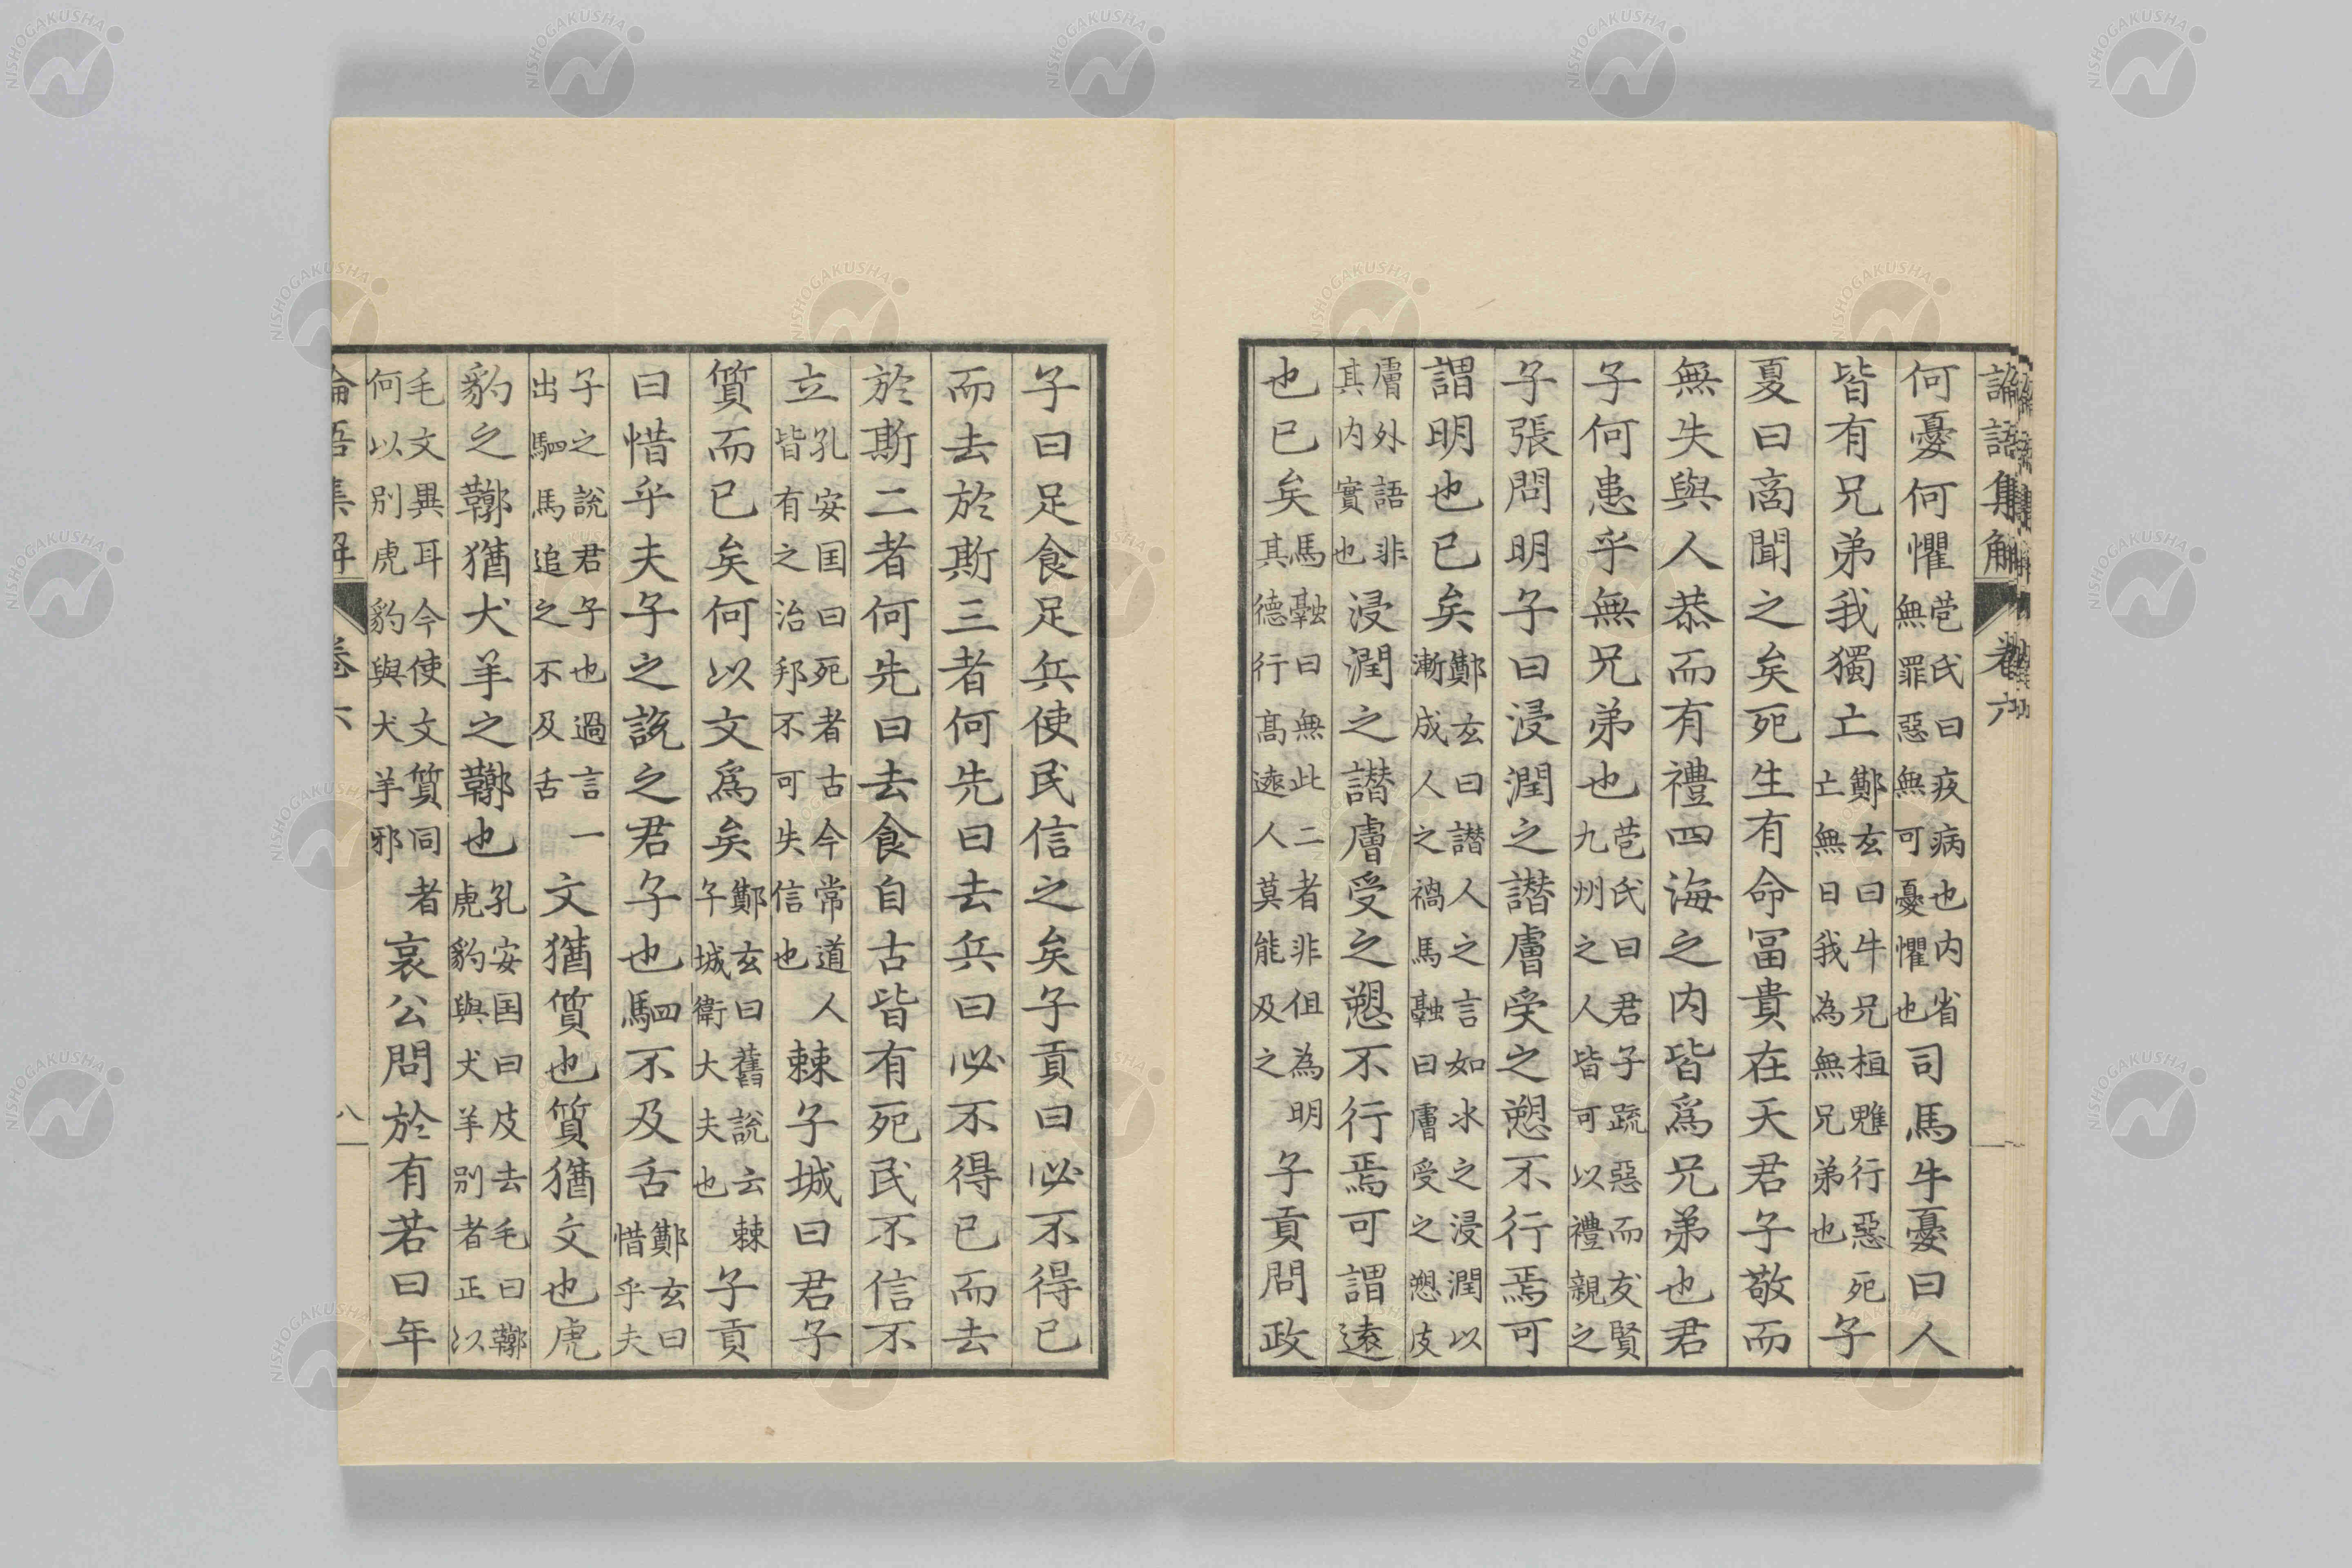 論語集解 卷六
何憂何懼苞氏曰疚病也内省無罪惡無可憂懼也司馬牛憂曰人
皆有兄弟我獨亡鄭玄曰牛兄桓魋行惡死亡無日我為無兄弟也子
夏曰商聞之矣死生有命冨貴在天君子敬而
無失與人恭而有禮四海之内皆爲兄弟也君
子何患乎無兄弟也苞氏曰君子疏惡而友賢九州之人皆可以禮親之
子張問明子曰浸潤之譖膚受之愬不行焉可
謂明也已矣鄭玄曰譖人之言如水之浸潤以漸成人之禍馬融曰膚受之愬皮
膚外語非其内實也浸潤之譖膚受之愬不行焉可謂遠
也已矣馬融曰無此二者非但為明其德行髙遠人莫能及之子貢問政
子曰足食足兵使民信之矣子貢曰必不得已
而去於斯三者何先曰去兵曰必不得已而去
於斯二者何先曰去食自古皆有死民不信不
立孔安国曰死者古今常道人皆有之治邦不可失信也棘子城曰君子
質而已矣何以文爲矣鄭玄曰舊說云棘子城衛大夫也子貢
曰惜乎夫子之說之君子也駟不及舌鄭玄曰惜乎夫
子之說君子也過言一出駟馬追之不及舌文猶質也質猶文也虎
豹之鞹猶犬羊之鞹也孔安国曰皮去毛曰鞹虎豹與犬羊別者正以
毛文異耳今使文質同者何以別虎豹與犬羊邪哀公問於有若曰年
論語集解 卷六 八
NISHOGAKUSHA